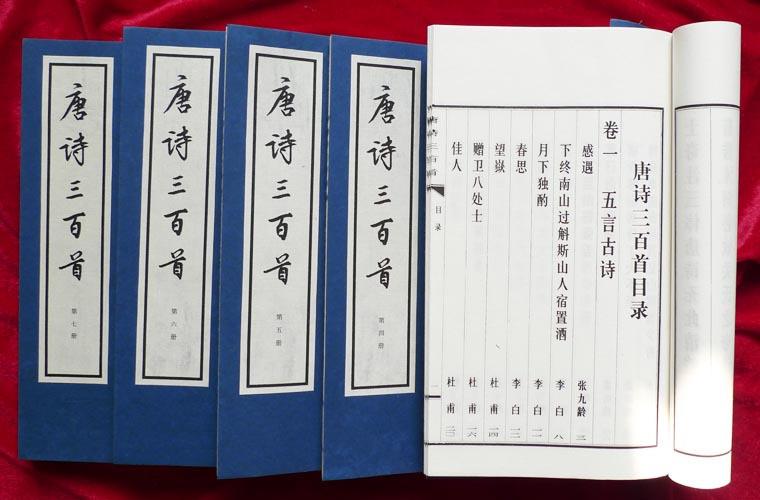 唐诗三百首
第七册
唐诗三百首
第六册
唐诗三百首
第五册
唐诗三百首
第四册
唐诗三百首目录
卷一 五言古诗
感遇 张九龄 三
下终南山过斛斯山人宿置酒 李白 八
月下独酌 李白 一一
春思 李白 一三
望嶽 杜甫 一四
赠卫八处士 杜甫 一六
佳人 杜甫 二〇
唐诗三百首 目录 一